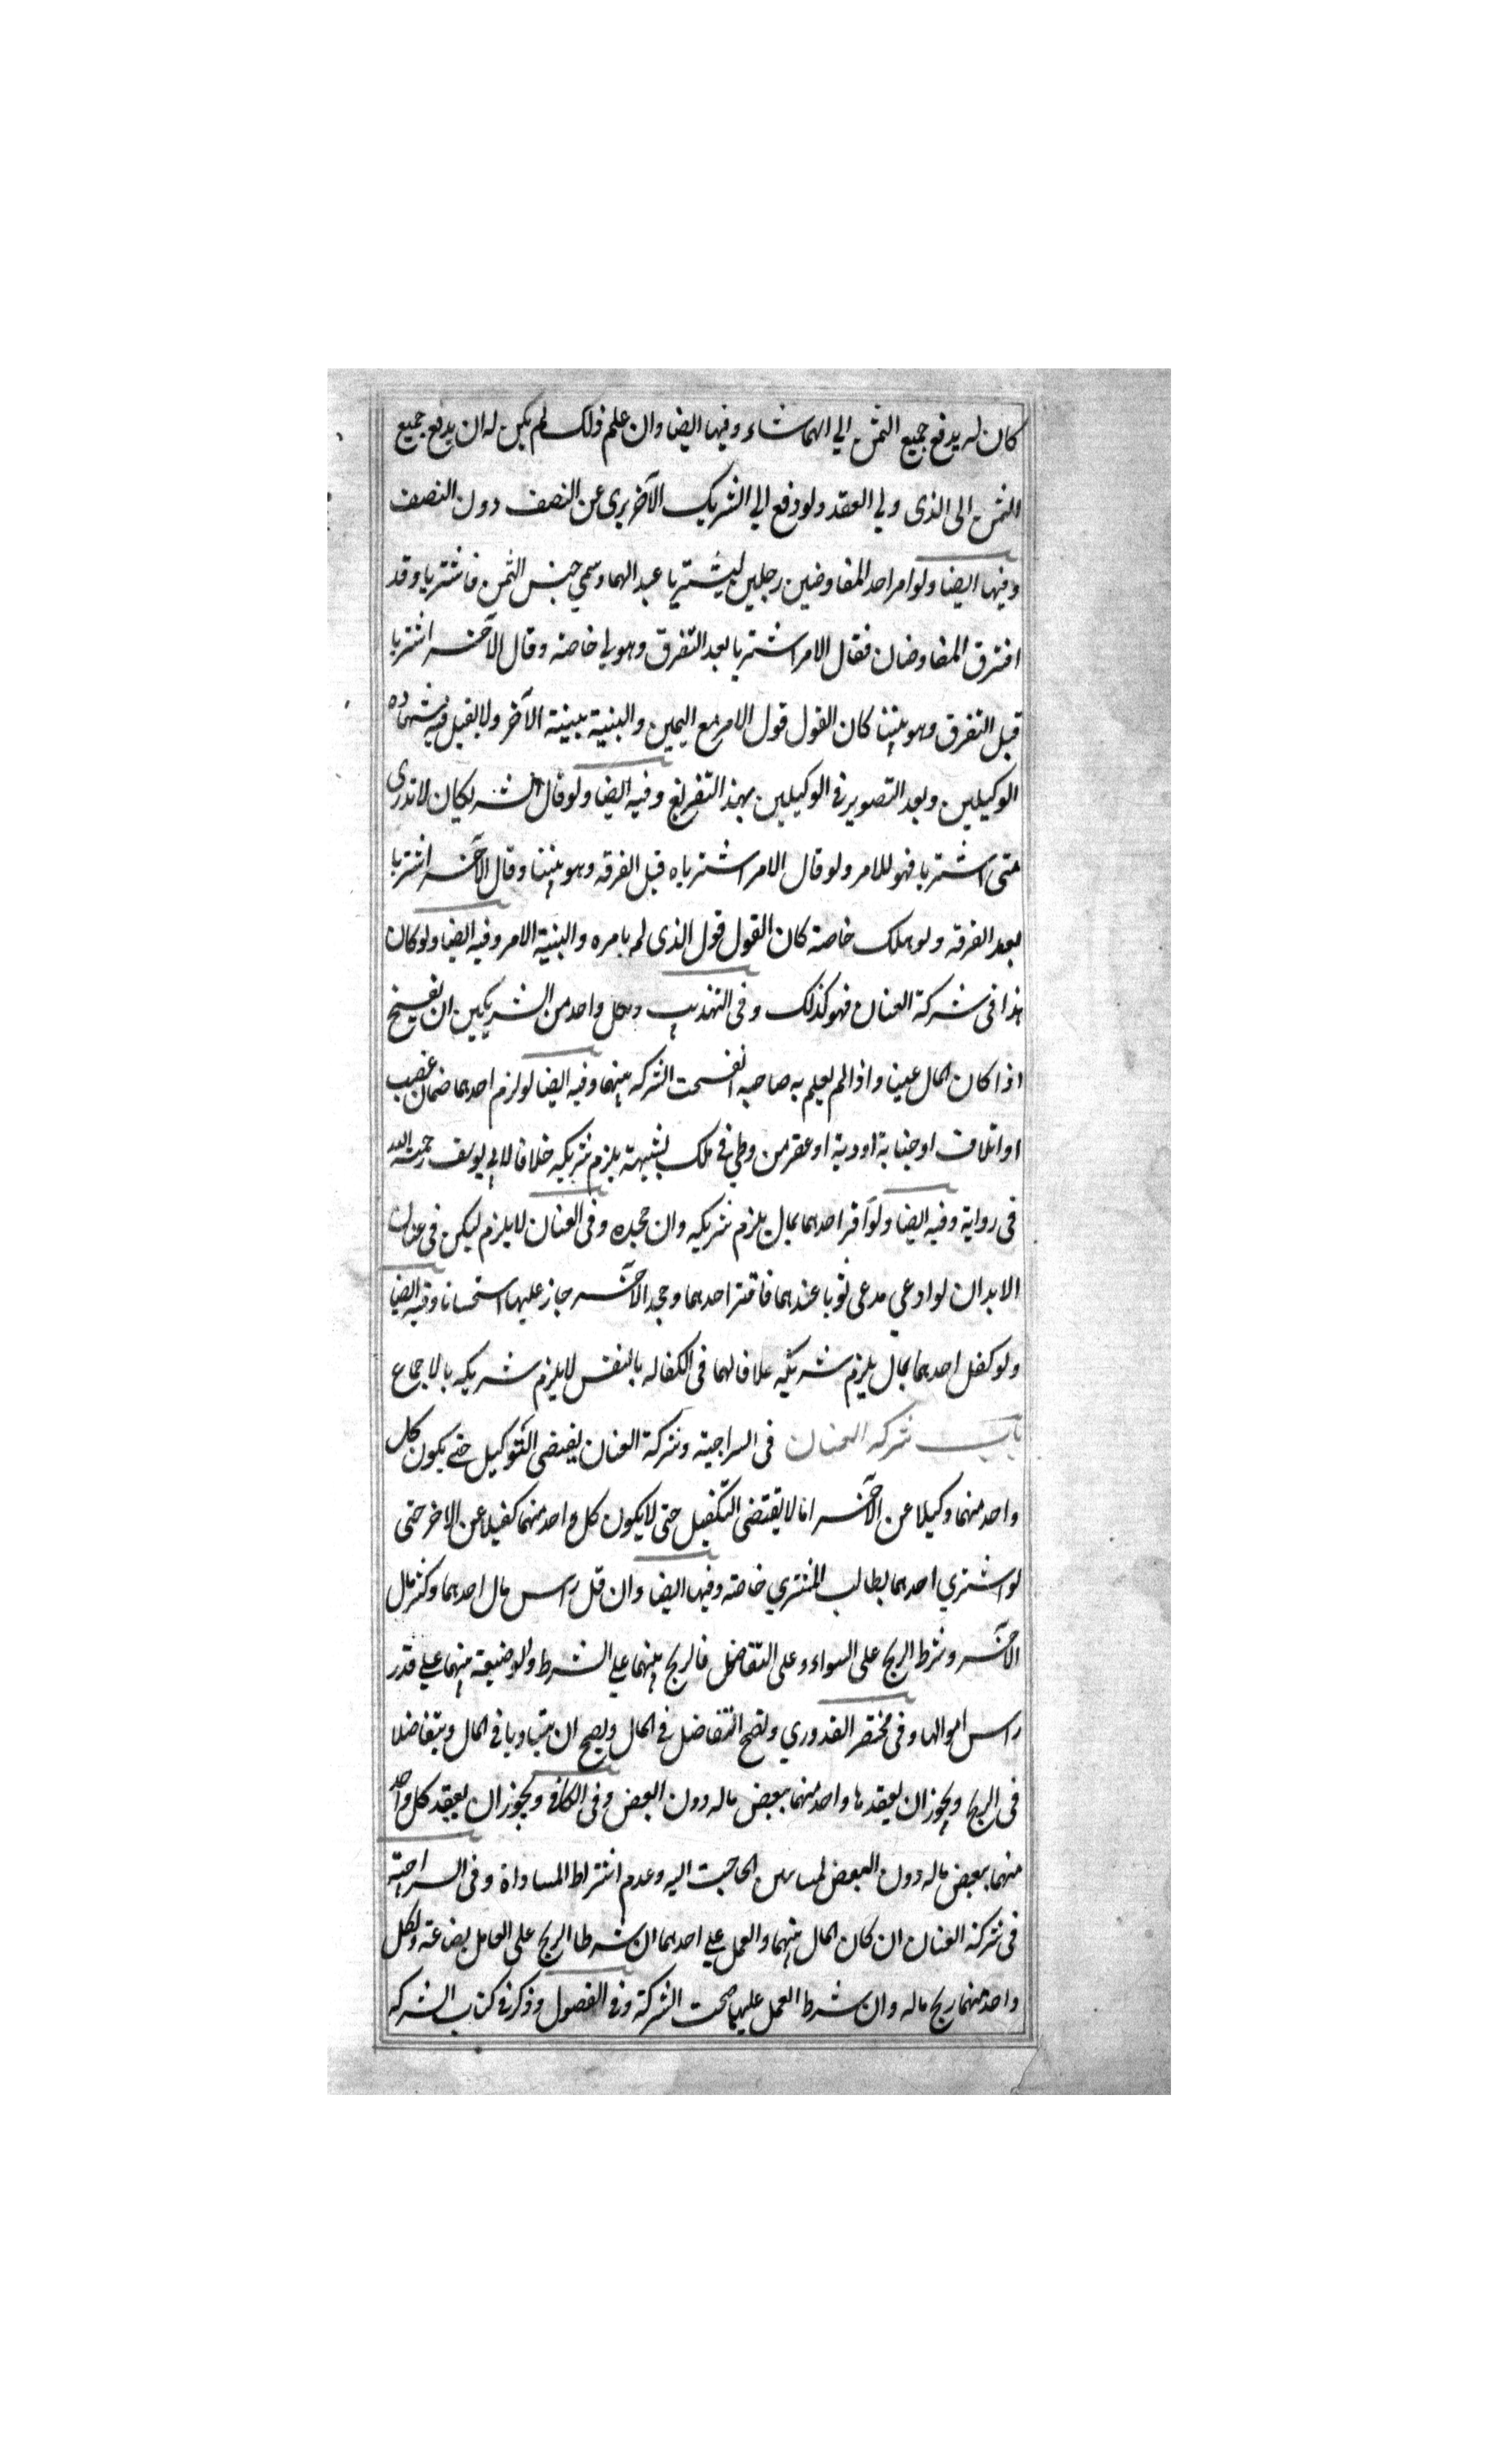 كان له يدفع جميع الثمن الي ايهما شاء وفيها ايضا وان علم ذلك لم يكن له ان يدفع جميع
الثمن الى الذى ولي العقد ولو دفع الي الشريك الآخر برى عن النصف دون النصف
وفيها ايضا ولو امر احد المفاوضين رجلين ليشتريا عبدا لهما وسمي جنس الثمن فاشتريا وقد
افترق المفاوضان فقال الامر اشتريا بعد التفرق وهو لي خاصة وقال الآخر اشتريا
قبل التفرق وهو بيننا كان القول قول الامر مع اليمين والبينة ببينة الآخر ولا يقبل فيه شهادة
الوكيلين وبعد التصوير في الوكيلين بهذ التفريع وفيه ايضا ولو قال الشريكان لا ندرى
متى اشتريا فهو للامر ولو قال الامر اشترياه قبل الفرقه وهو بيننا وقال الآخر اشتريا
بعد الفرقة ولو هلك خاصة كان القول قول الذى لم يامره والبينة الامر وفيه ايضا ولو كان
هذا فى شركة العنان فهو كذلك وفى التهذيب ولكل واحد من الشريكين ان يفسخ
اذا كان المال عينا واذا لم يعلم به صاحبه انفسخت الشركه بينهما وفيه ايضا لو لزم احدهما ضمان غصب
او اتلاف او جناية او دية او عقر من وطي في ملك بشبهة يلزم شريكه خلافا لابي يوسف رحمة الله
فى رواية وفيه ايضا ولو اقر احدهما بمال يلزم شريكه وان جحده وفى العنان لا يلزم ليكن فى عنان
الابدان لو ادعي مدعى ثوبا عندهما فاقر احدهما وجحد الآخر جاز عليهما استحسانا وفيه ايضا
ولو كفل احدهما بمال يلزم شريكه علافا لهما فى الكفاله بالنفس لا يلزم شريكه بالاجماع
باب شركه العنان فى السراجية وشركة العنان يقتضى التوكيل حتي يكون كل
واحد منهما وكيلا عن الآخر اما لا يقتضى التكفيل حتى لا يكون كل واحد منهما كفيلا عن الاخر حتى
لو اشتري احدهما يطالب المشتري خاصة وفيها ايضا وان قل راس مال احدهما وكثر مال
الآخر وشرط الربح على السواء وعلى التفاضل فالربح بينهما علي الشرط والوضيعة بينهما علي قدر
راس اموالهما وفى مختصر القدوري وتصح التفاضل في المال ويصح ان يتساويا في المال ويتفاضلا
فى الربح ويجوز ان يعقدها واحد منهما ببعض ماله دون البعض وفى الكافي ويجوز ان يعقد كل واحد
منهما ببعض ماله دون البعض لمساس الحاجت اليه وعدم اشتراط المساواة وفى السراجية
فى شركة العنان ان كان المال بينهما والعمل علي احدهما ان شرطا الربح على العامل بضاعة ولكل
واحد منهما ربح ماله وان شرط العمل عليهما صحت الشركة وفي الفصول وذكر في كتاب الشركه